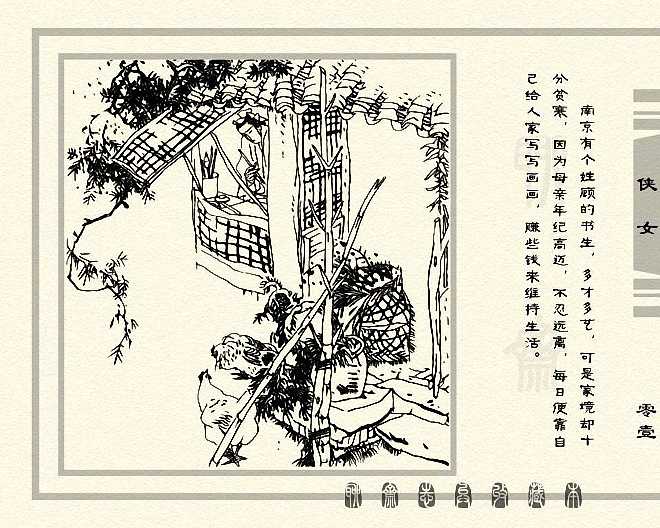 南京有个姓顾的书生，多才多艺，可是家境却十
分贫寒，因为母亲年纪高迈，不忍远离，每日便靠自
己给人家写写画画，赚些钱来维持生活。
侠女
零壹
聊斋志异收藏本